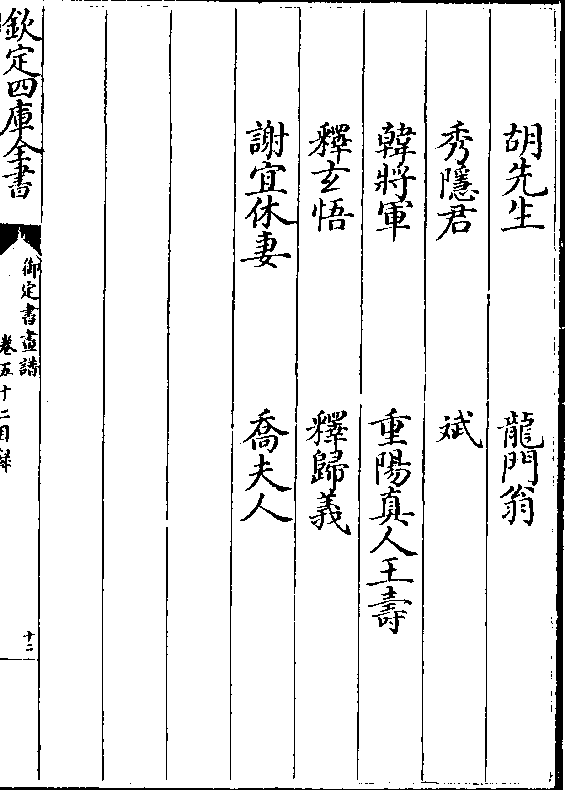 胡先生 龍門翁
秀隱君 斌
韓將軍 重陽真人王壽
釋玄悟 釋歸義
謝宜休妻 喬夫人
欽定四庫全書
御定書畫譜
卷五十二目録
十二